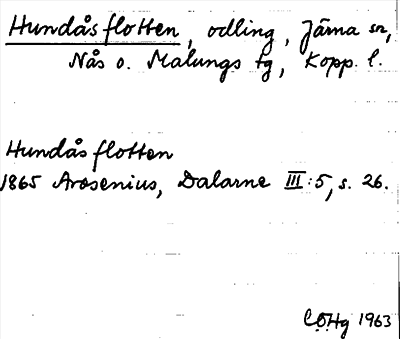 Hundåsflotten, odling, Järna sn,
Nås o. Malungs tg, Kopp. l.
Hundåsflotten
1865 Arosenius, Dalarne III:5, s. 26.
CÖHg 1963